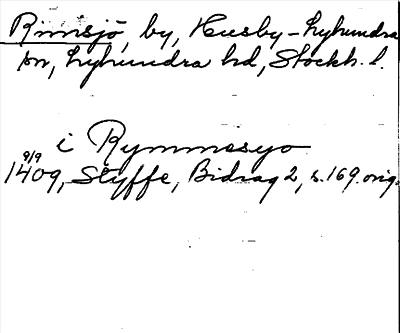 Rimsjö, by, Husby-Lyhundra
sn, Lyhundra hd, Stockh. l.
i Rymmesyo
9/9
1409, Styffe, Bidrag 2, s. 169. orig.